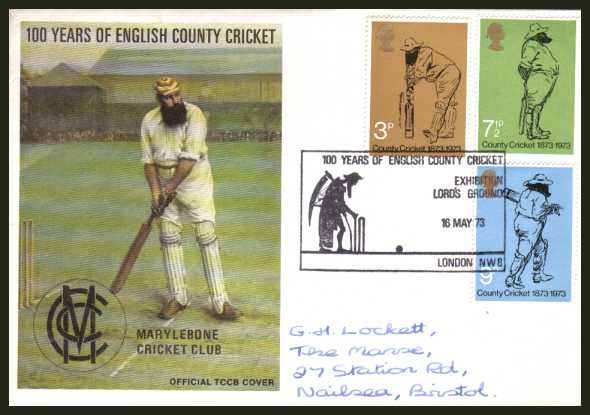 100 YEARS OF ENGLISH COUNTY CRICKET
MCC
MARYLEBONE
CRICKET CLUB
OFFICIAL TCCB COVER
3P
County Cricket 1873-1973
7½P
County Cricket 1873-1973
9P
County Cricket 1873-1973
100 YEARS OF ENGLISH COUNTY CRICKET
EXHIBITION
LORD'S GROUND
16 MAY 73
LONDON NW8
G.H. Lockett,
The Manse,
27 Station Rd,
Nailsea, Bristol.